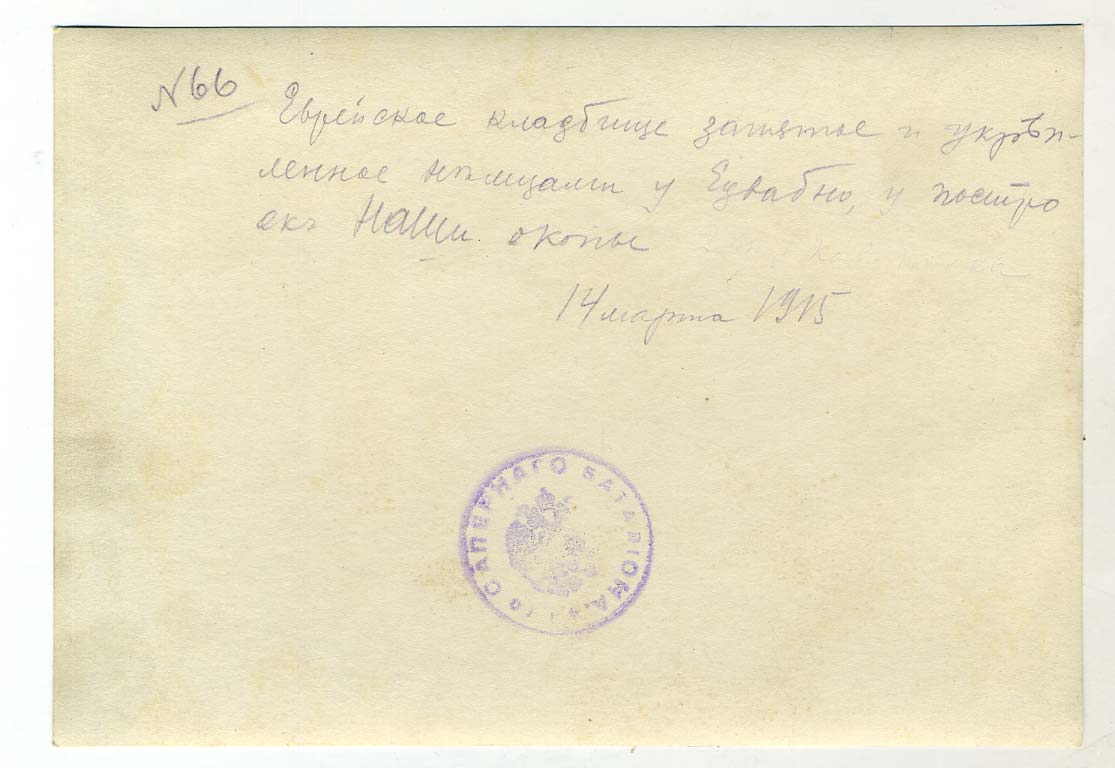 N 66
Еврейское кладбище занятое и укрѣп-
ленное немцами у Едвабно, у постро
екъ Наши окопы
14 марта 1915
САПЕРНАГО БАТАЛІОНА